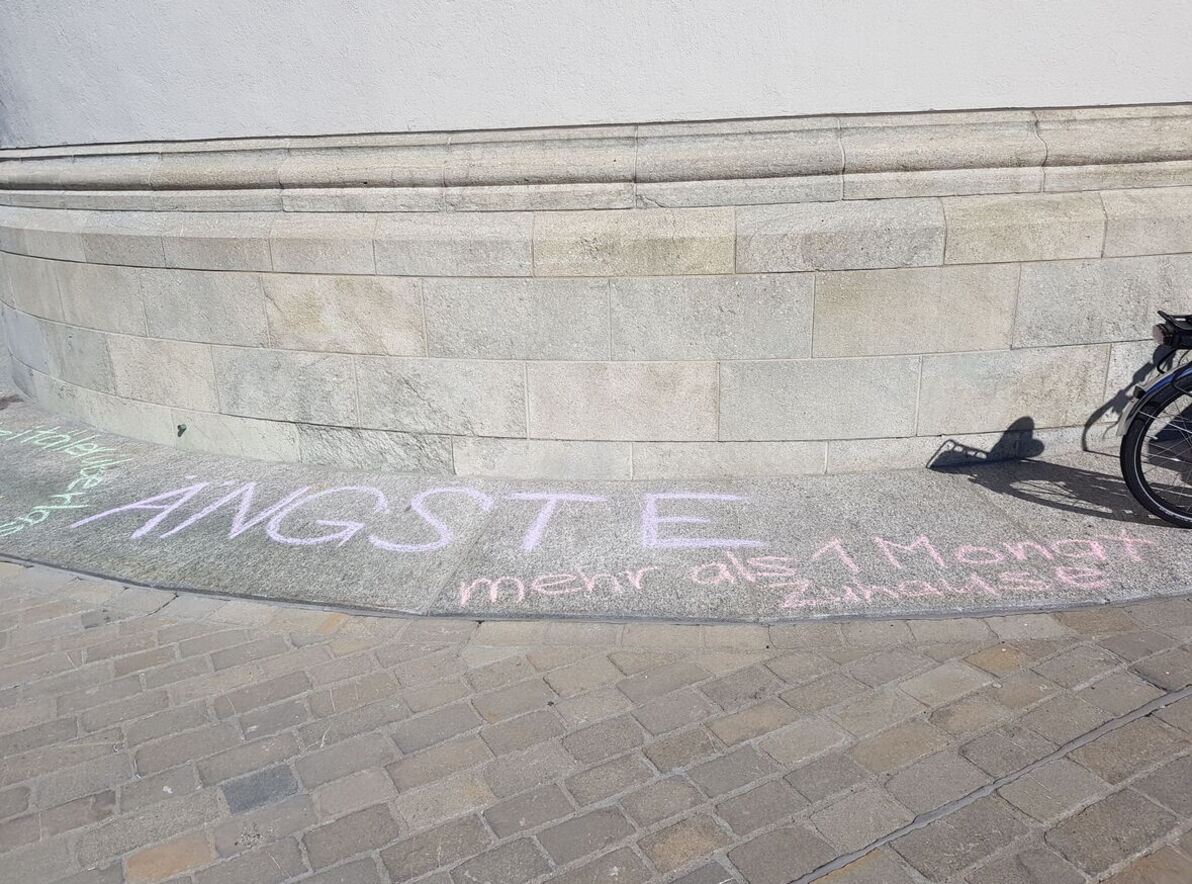 ÄNGSTE
mehr als 1 Monat
Zuhause